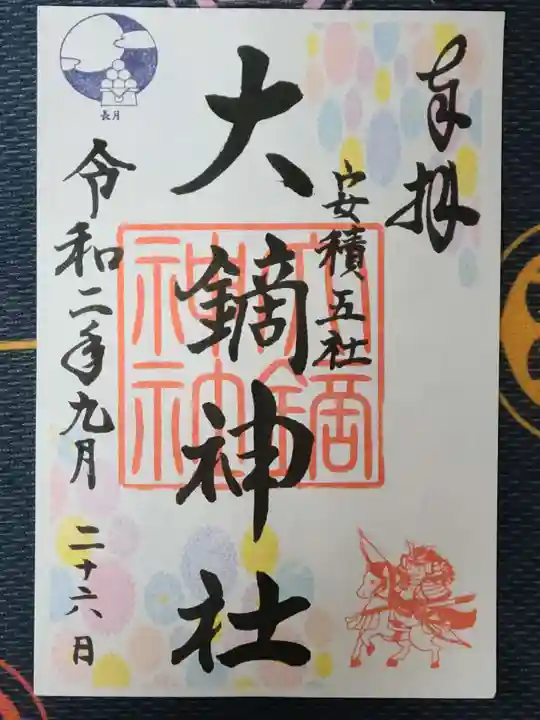 奉拝
安積五社
大鏑神社
大鏑
神社
令和二年九月二十六日
長月